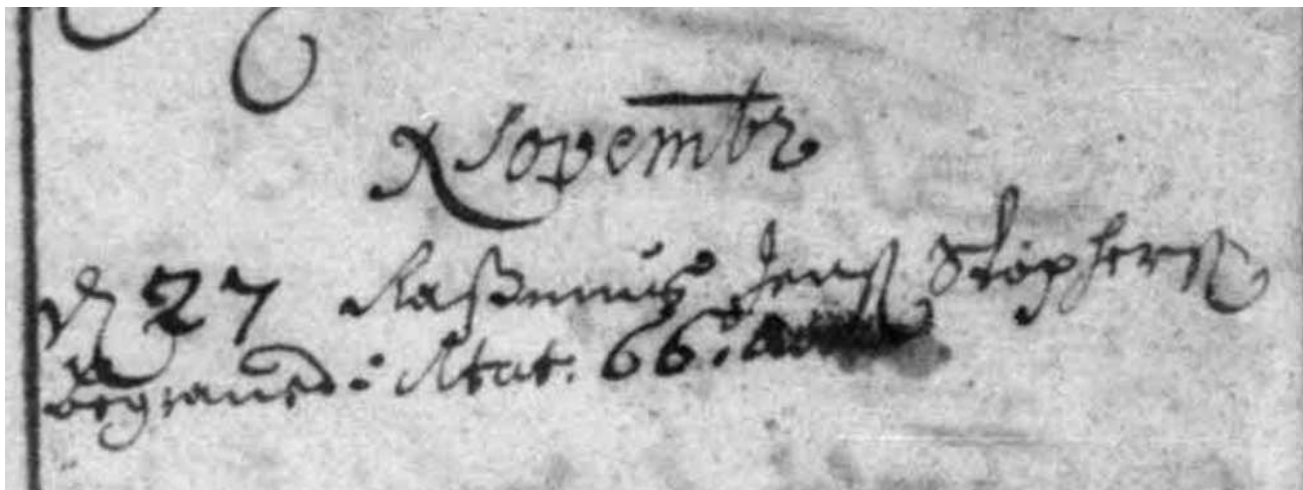 Novembr
d 27 Raßmus Jenß Stophers
begraved: Ætat. 66.